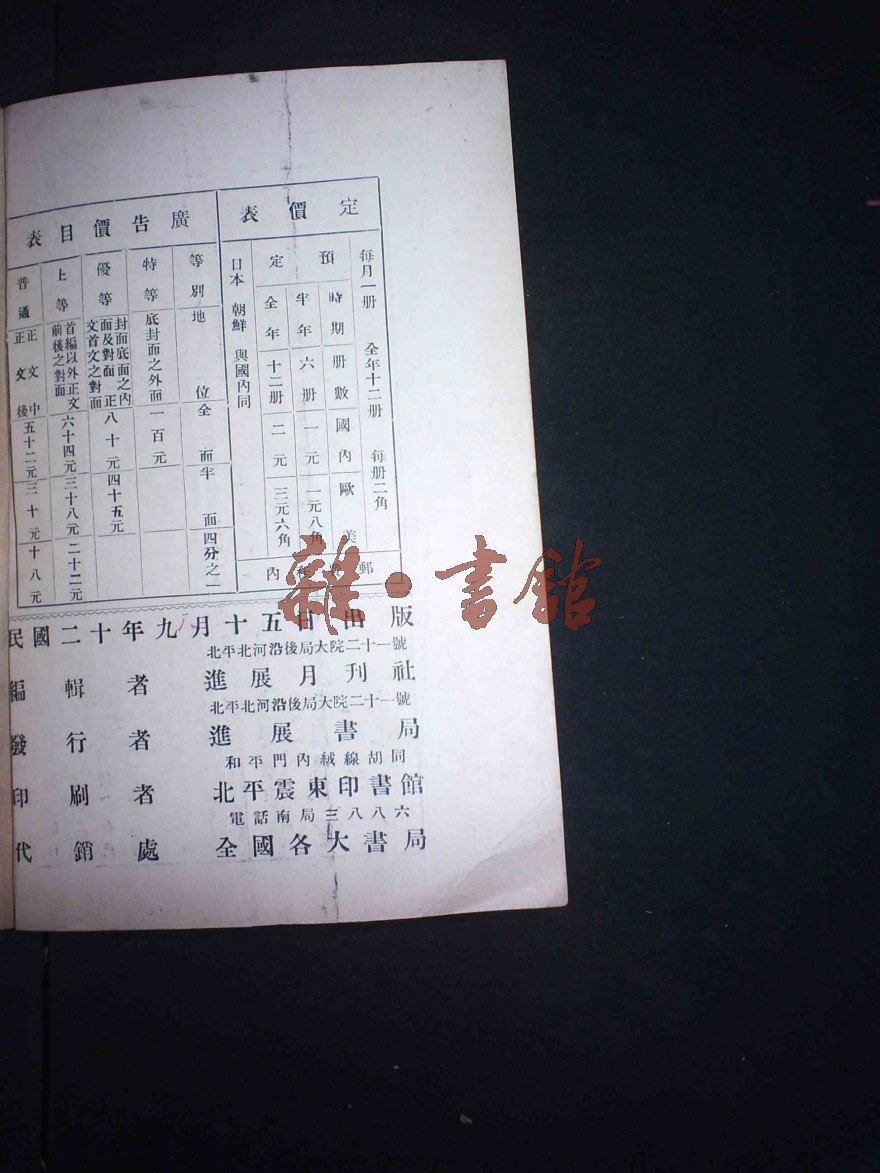 定價表
每月一册 全年十二册 每册二角
預定 時期 册數 國內 歐美
半年 六册 一元 一元八角
全年 十二册 二元 三元六角
日本 朝鮮 與國內同
郵 內
廣告價目表
等別 地位 全面 半面 四分之一
特等 底封面之外面 一百元
優等 封面底面之內面及對面正文首文之對面 八十元 四十五元
上等 首編以外正文前後之對面 六十四元 三十八元 二十二元
普通 正文中正文後 五十二元 三十元 十八元
民國二十年九月十五日出版
北平北河沿後局大院二十一號
編輯者 進展月刊社
北平北河沿後局大院二十一號
發行者 進展書局
和平門內絨線胡同
印刷者 北平震東印書館
電話南局三八八六
代銷處 全國各大書局
雜·書館